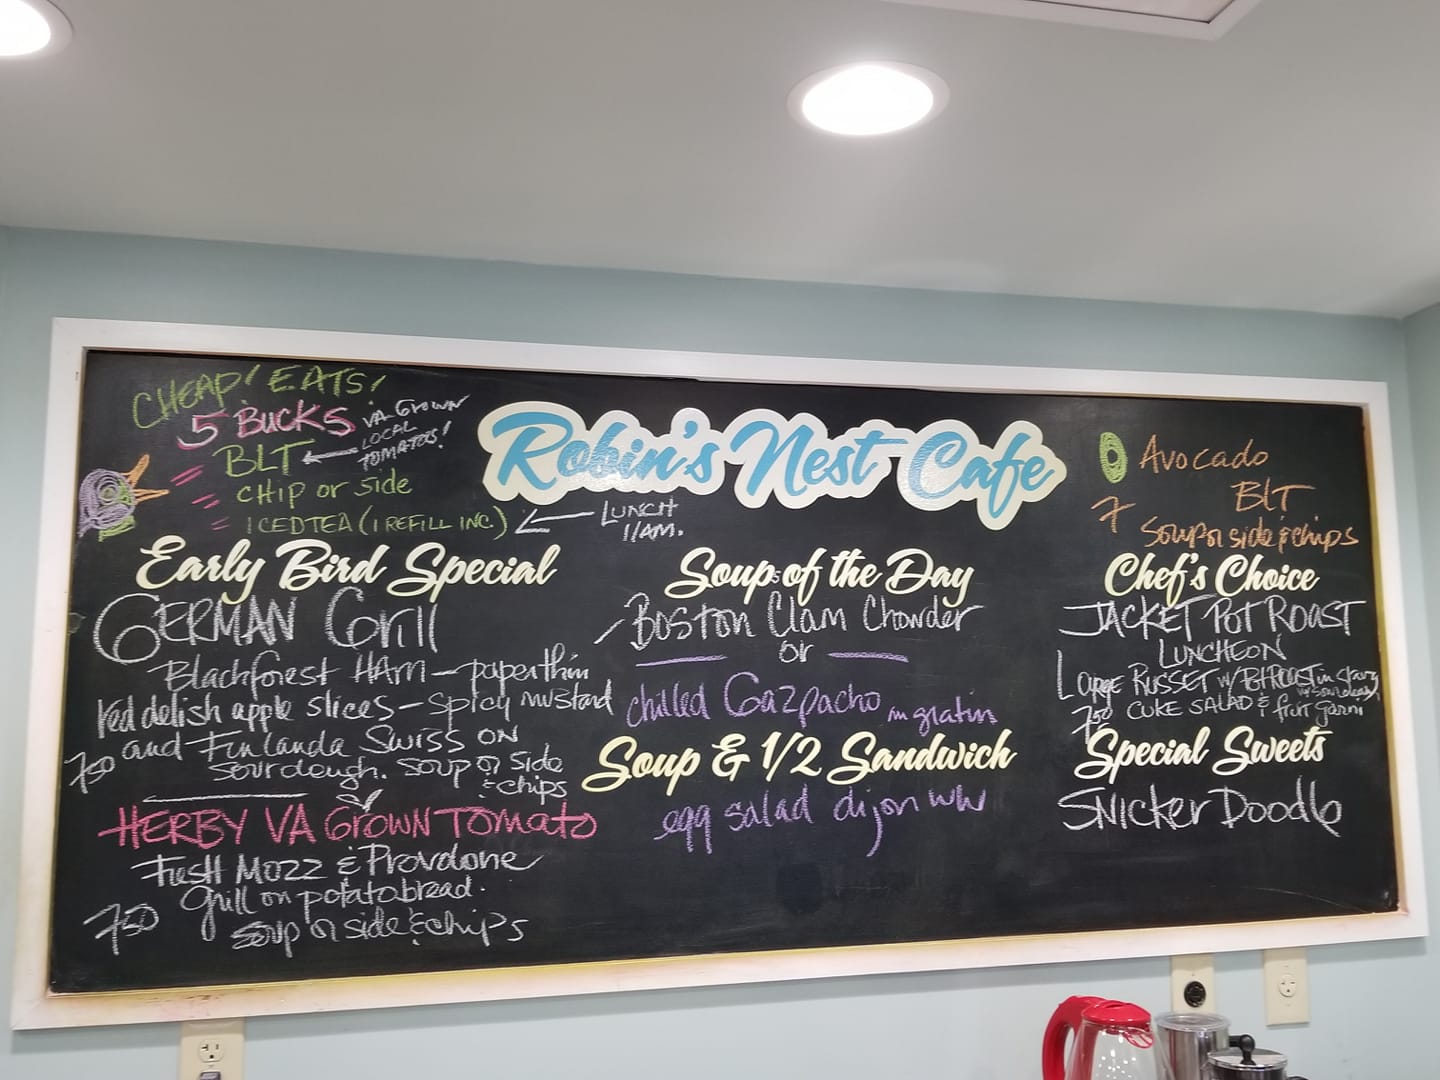 CHEAP! EATS!
5 BUCKS
VA GROWN
LOCAL
TOMATOS!
BLT
CHIP or side
ICED TEA (1 REFILL INC.)
LUNCH
11AM.
Robin's Nest Cafe
Avocado
BLT
7
Soup or side & chips
Early Bird Special
GERMAN Grill
Blackforest HAM - paper thin
red delish apple slices - spicy mustard
and Finlanda Swiss ON
750
sourdough. soup or side
& chips
HERBY VA GROWN TOMATO
FresH Mozz & Provolone
Grill on potatobread.
750
soup or side & chips
Soup of the Day
Boston Clam Chowder
or
chilled Gazpacho
Soup & 1/2 Sandwich
egg salad dijon ww
Chef's Choice
JACKET POT ROAST
LUNCHEON
Large RUSSET W/ POTROAST in
750
CUKE SALAD & fruit garni
Special Sweets
SNICKER DOODLE